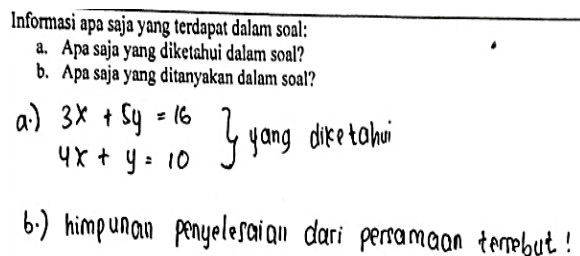 Informasi apa saja yang terdapat dalam soal:
a. Apa saja yang diketahui dalam soal?
b. Apa saja yang ditanyakan dalam soal?
a.) 3x + 5y = 16 } yang diketahui
4x + y = 10
b.) himpunan penyelesaian dari persamaan tersebut !